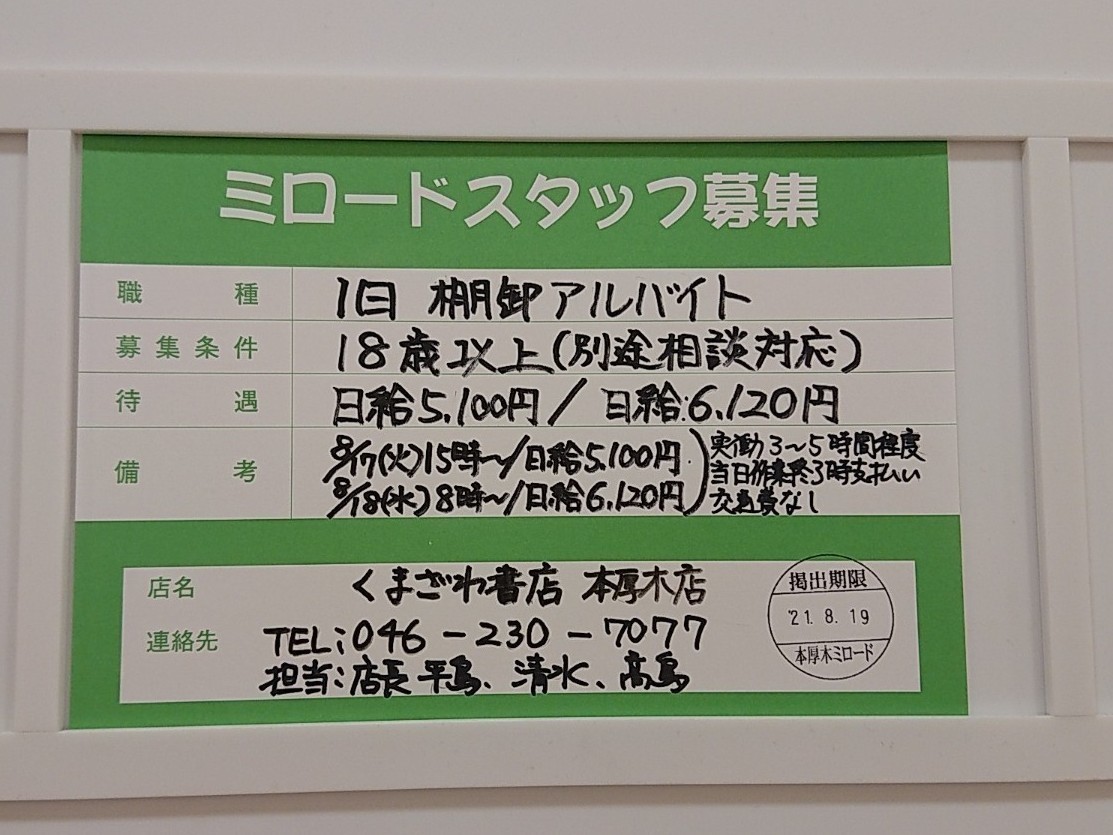 ミロードスタッフ募集
職種 1日 棚卸アルバイト
募集条件 18歳以上(別途相談対応)
待遇 日給5.100円/日給:6.120円
備考 8/17(火)15時〜/日給5.100円
8/18(水)8時〜/日給6.120円
実働3〜5時間程度
当日作業終了時支払い
交通費なし
店名 くまざわ書店 本厚木店
連絡先 TEL:046-230-7077
担当:店長 平島、清水、髙島
掲出期限
'21.8.19
本厚木ミロード